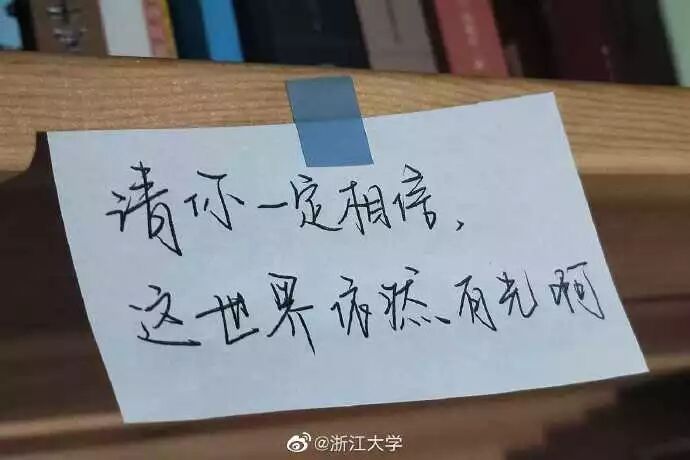 请你一定相信,
这世界依然有光啊
@浙江大学